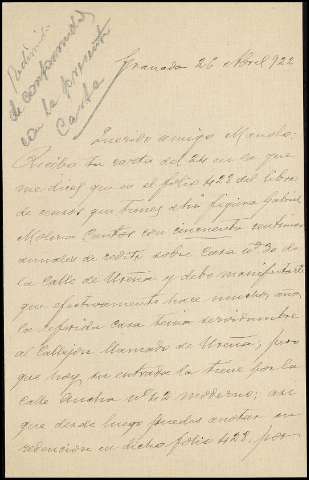 de conformidad
con la presente
Carta
Granada 26 Abril 922
Querido amigo Manolo:
Recibo tu carta del 24 en la que
me dices que en el folio 428 del libro
de censos que tienes ahi figura Gabriel
Molina Cantos con cincuenta centimos
anuales de redito sobre Casa nº 30 de
la Calle de Ureña y debo manifestarte
que efectivamente hace muchos años
la referida casa tenia servidumbre
al Callejon llamado de Ureña; pero
que hoy su entrada la tiene por la
Calle Ancha nº 42 moderno; asi
que desde luego puedes anotar su
redencion en dicho folio 428, por-